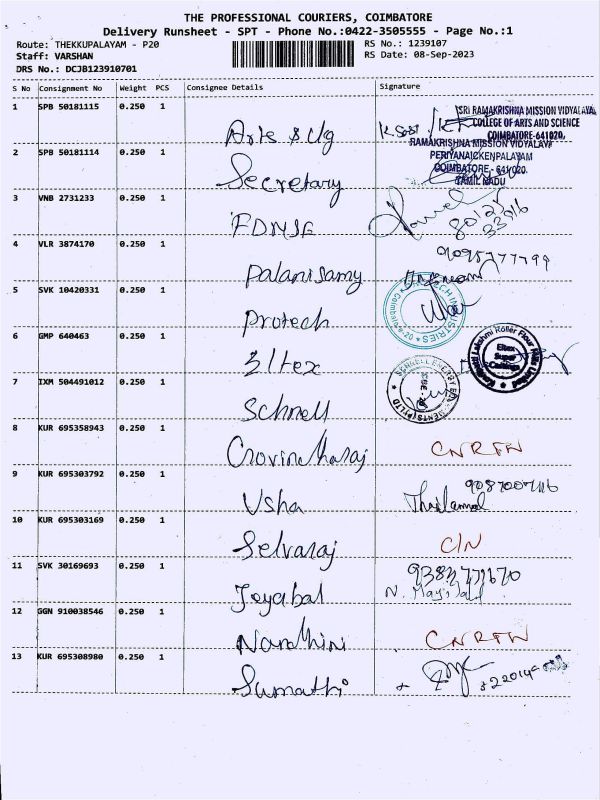 THE PROFESSIONAL COURIERS, COIMBATORE
Delivery Runsheet - SPT - Phone No.:0422-3505555 - Page No.:1
Route: THEKKUPALAYAM - P20
RS No.: 1239107
Staff: VARSHAN
RS Date: 08-Sep-2023
DRS No.: DCJB123910701
S No Consignment No Weight PCS Consignee Details Signature
1 SPB 50181115 0.250 1
Arts & Ug
SRI RAMAKRISHNA MISSION VIDYALAYA
COLLEGE OF ARTS AND SCIENCE
COIMBATORE-641020.
2 SPB 50181114 0.250 1
Secretary
RAMAKRISHNA MISSION VIDYALAYA
PERIYANAICKENPALAYAM
COIMBATORE - 641020
TAMIL NADU
3 VNB 2731233 0.250 1
4 VLR 3874170 0.250 1
Palanisamy
5 SVK 10420331 0.250 1
Protech
INDUSTRIES
Coimbatore-20
6 GMP 640463 0.250 1
Eltex
Super
Castings
Lakshmi Roller Flour Mills Limited
7 IXM 504491012 0.250 1
Schnell
SCHNELL ENERGY
(P) LTD
8 KUR 695358943 0.250 1
CNRTN
9 KUR 695303792 0.250 1
Usha
10 KUR 695303169 0.250 1
Selvaraj
C/N
11 SVK 30169693 0.250 1
Jeyabal
12 GGN 910038546 0.250 1
Nandhini
CNRTN
13 KUR 695308980 0.250 1
Sumathi